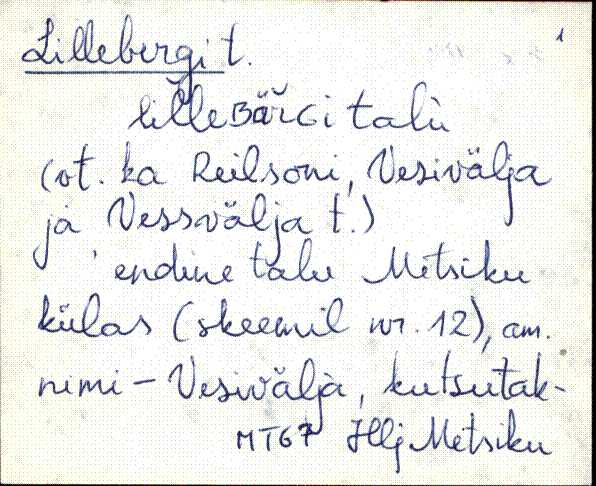 Lillebergi t.
1
lĭlleʙäřɢi talù
(vt. ka Reilsoni, Vesivälja
ja Vessvälja t.)
endine talu Metsiku
külas (skeemil nr. 12), am.
nimi - Vesivälja, kutsutak-
MT67 Jllj Metsiku